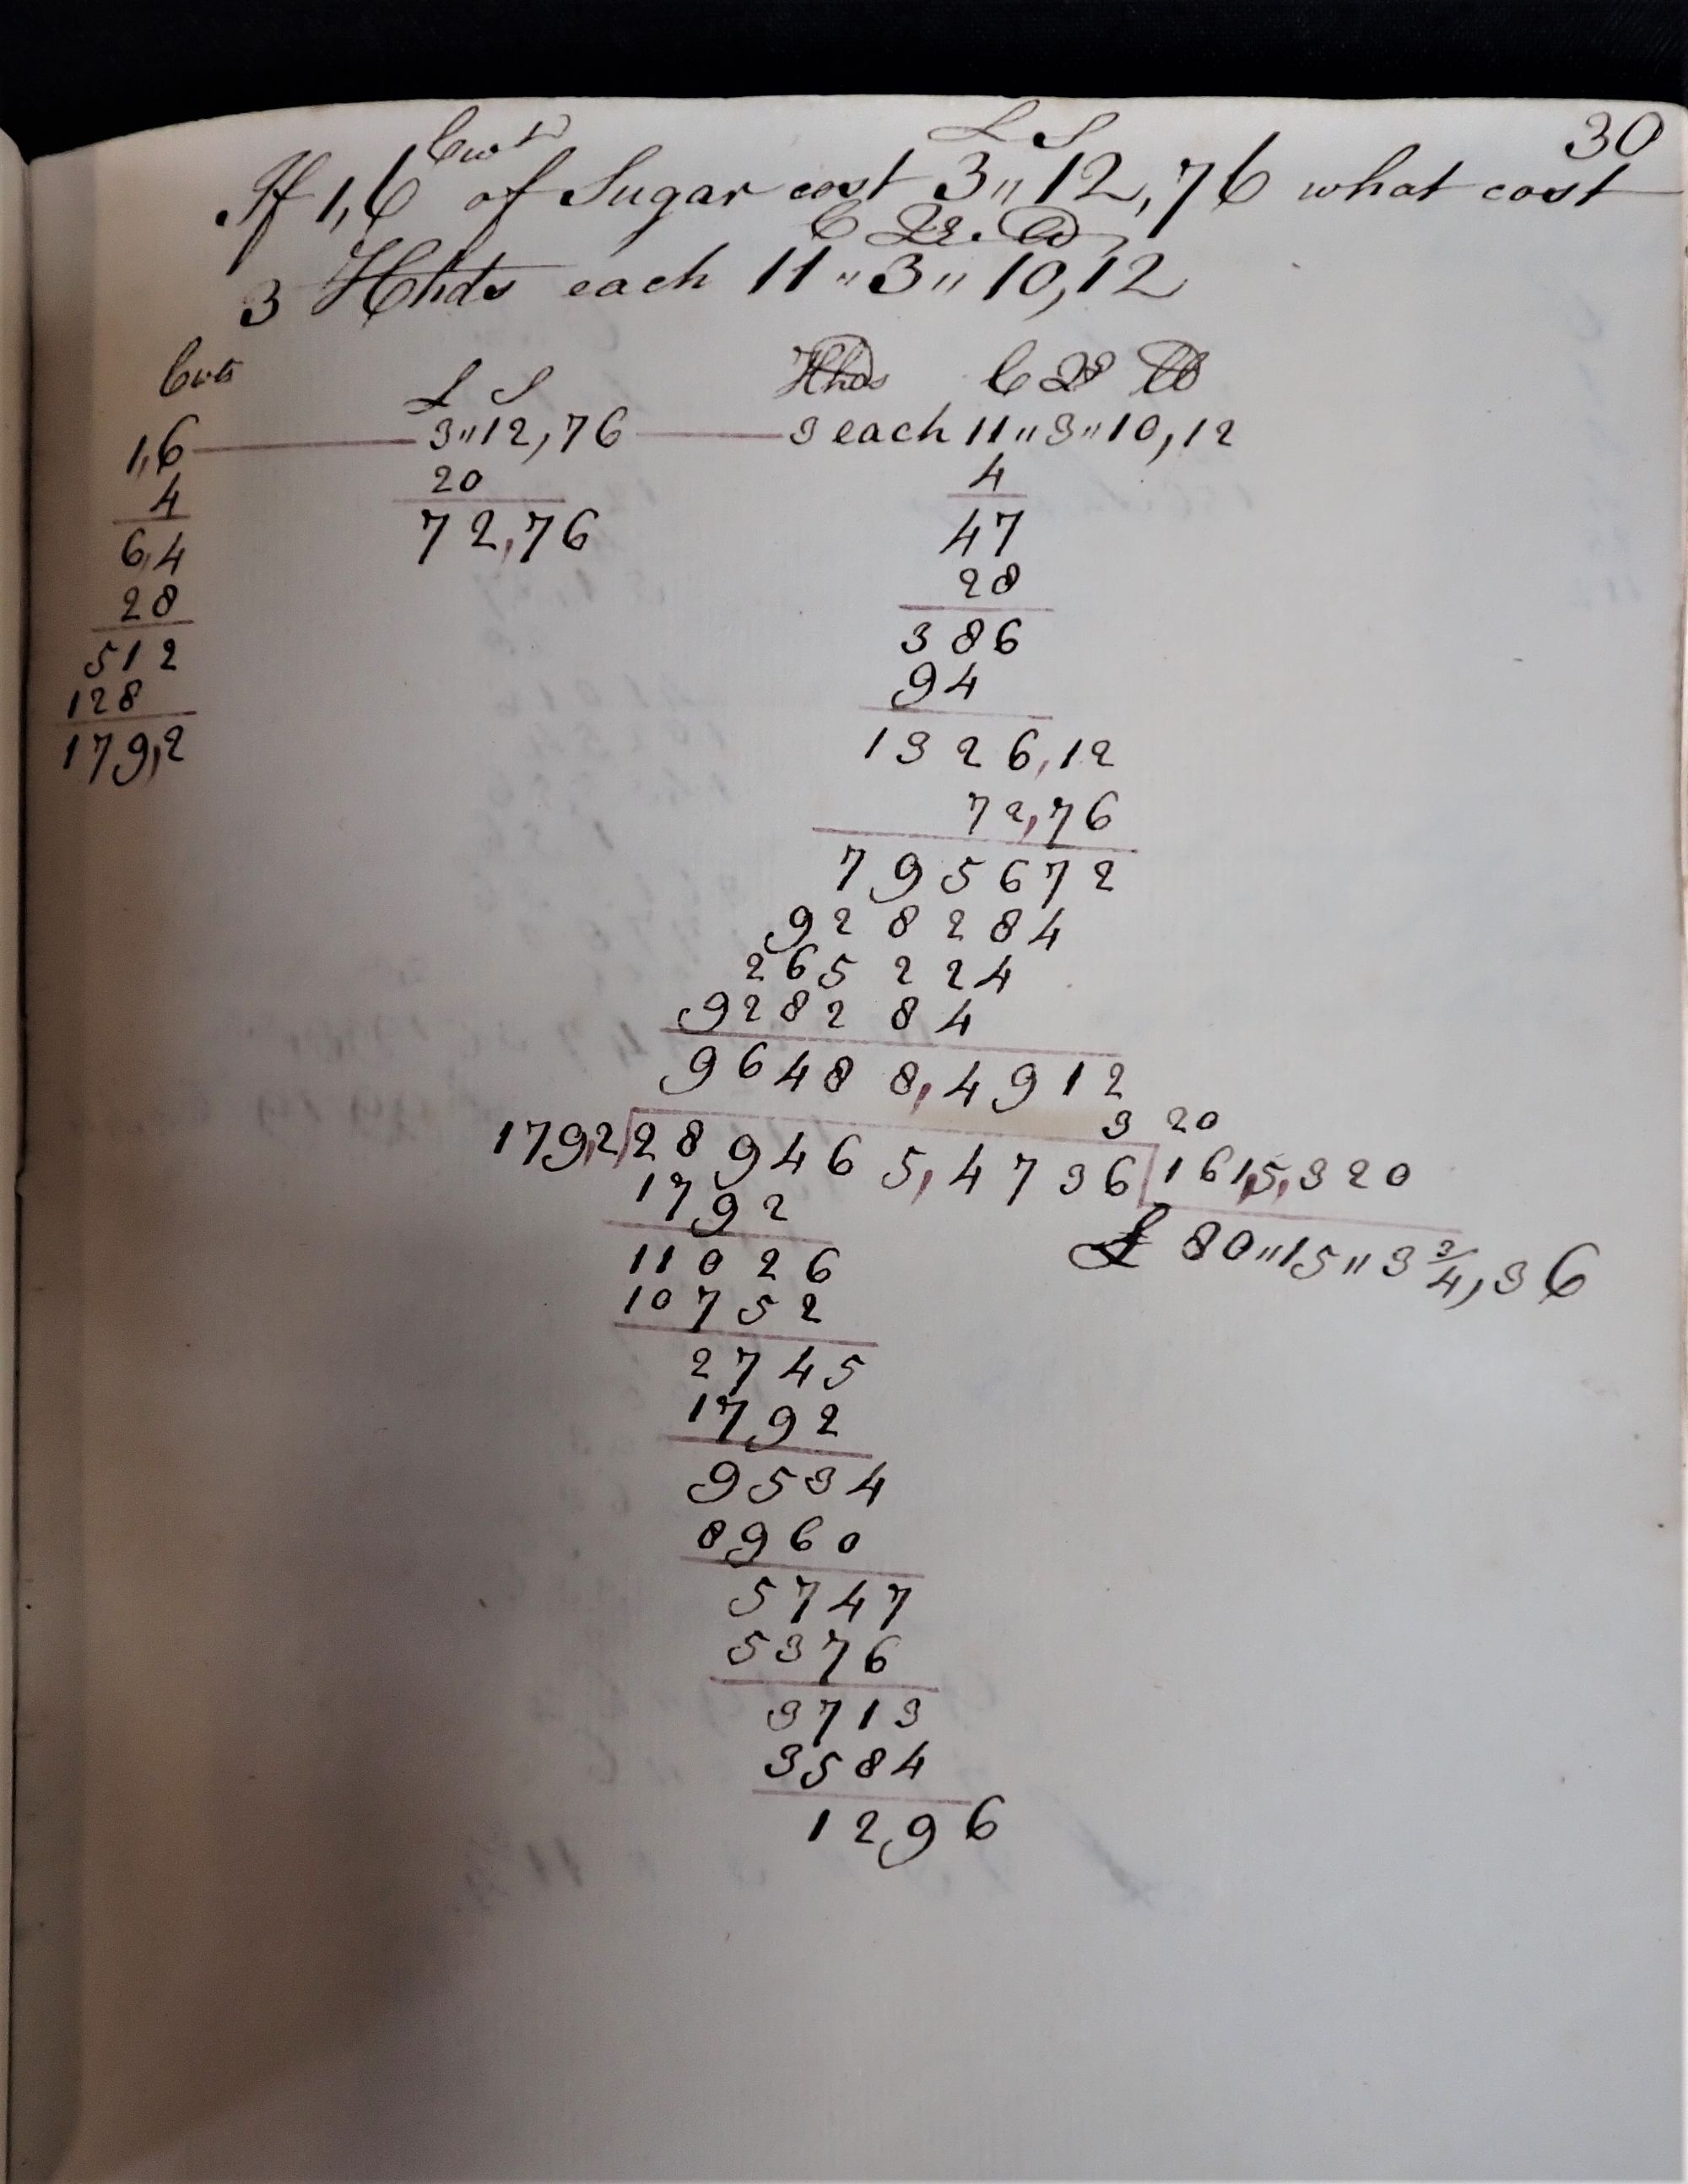 30
Cwt £ S
If 1,6 of Sugar cost 3〃12,76 what cost
C Qr. lb
3 Hhds each 11〃3〃10,12
Cwts £ S Hhds C Qr lb
1,6 3〃12,76 3 each 11〃3〃10,12
4 20 4
6,4 72,76 47
28 28
512 386
128 94
179,2 1326,12
72,76
795672
928284
265224
928284
96488,4912
3 20
179,2 289465,4736 1615,320
1792 £ 80〃15〃3 3/4,36
11026
10752
2745
1792
9534
8960
5747
5376
3713
3584
1296